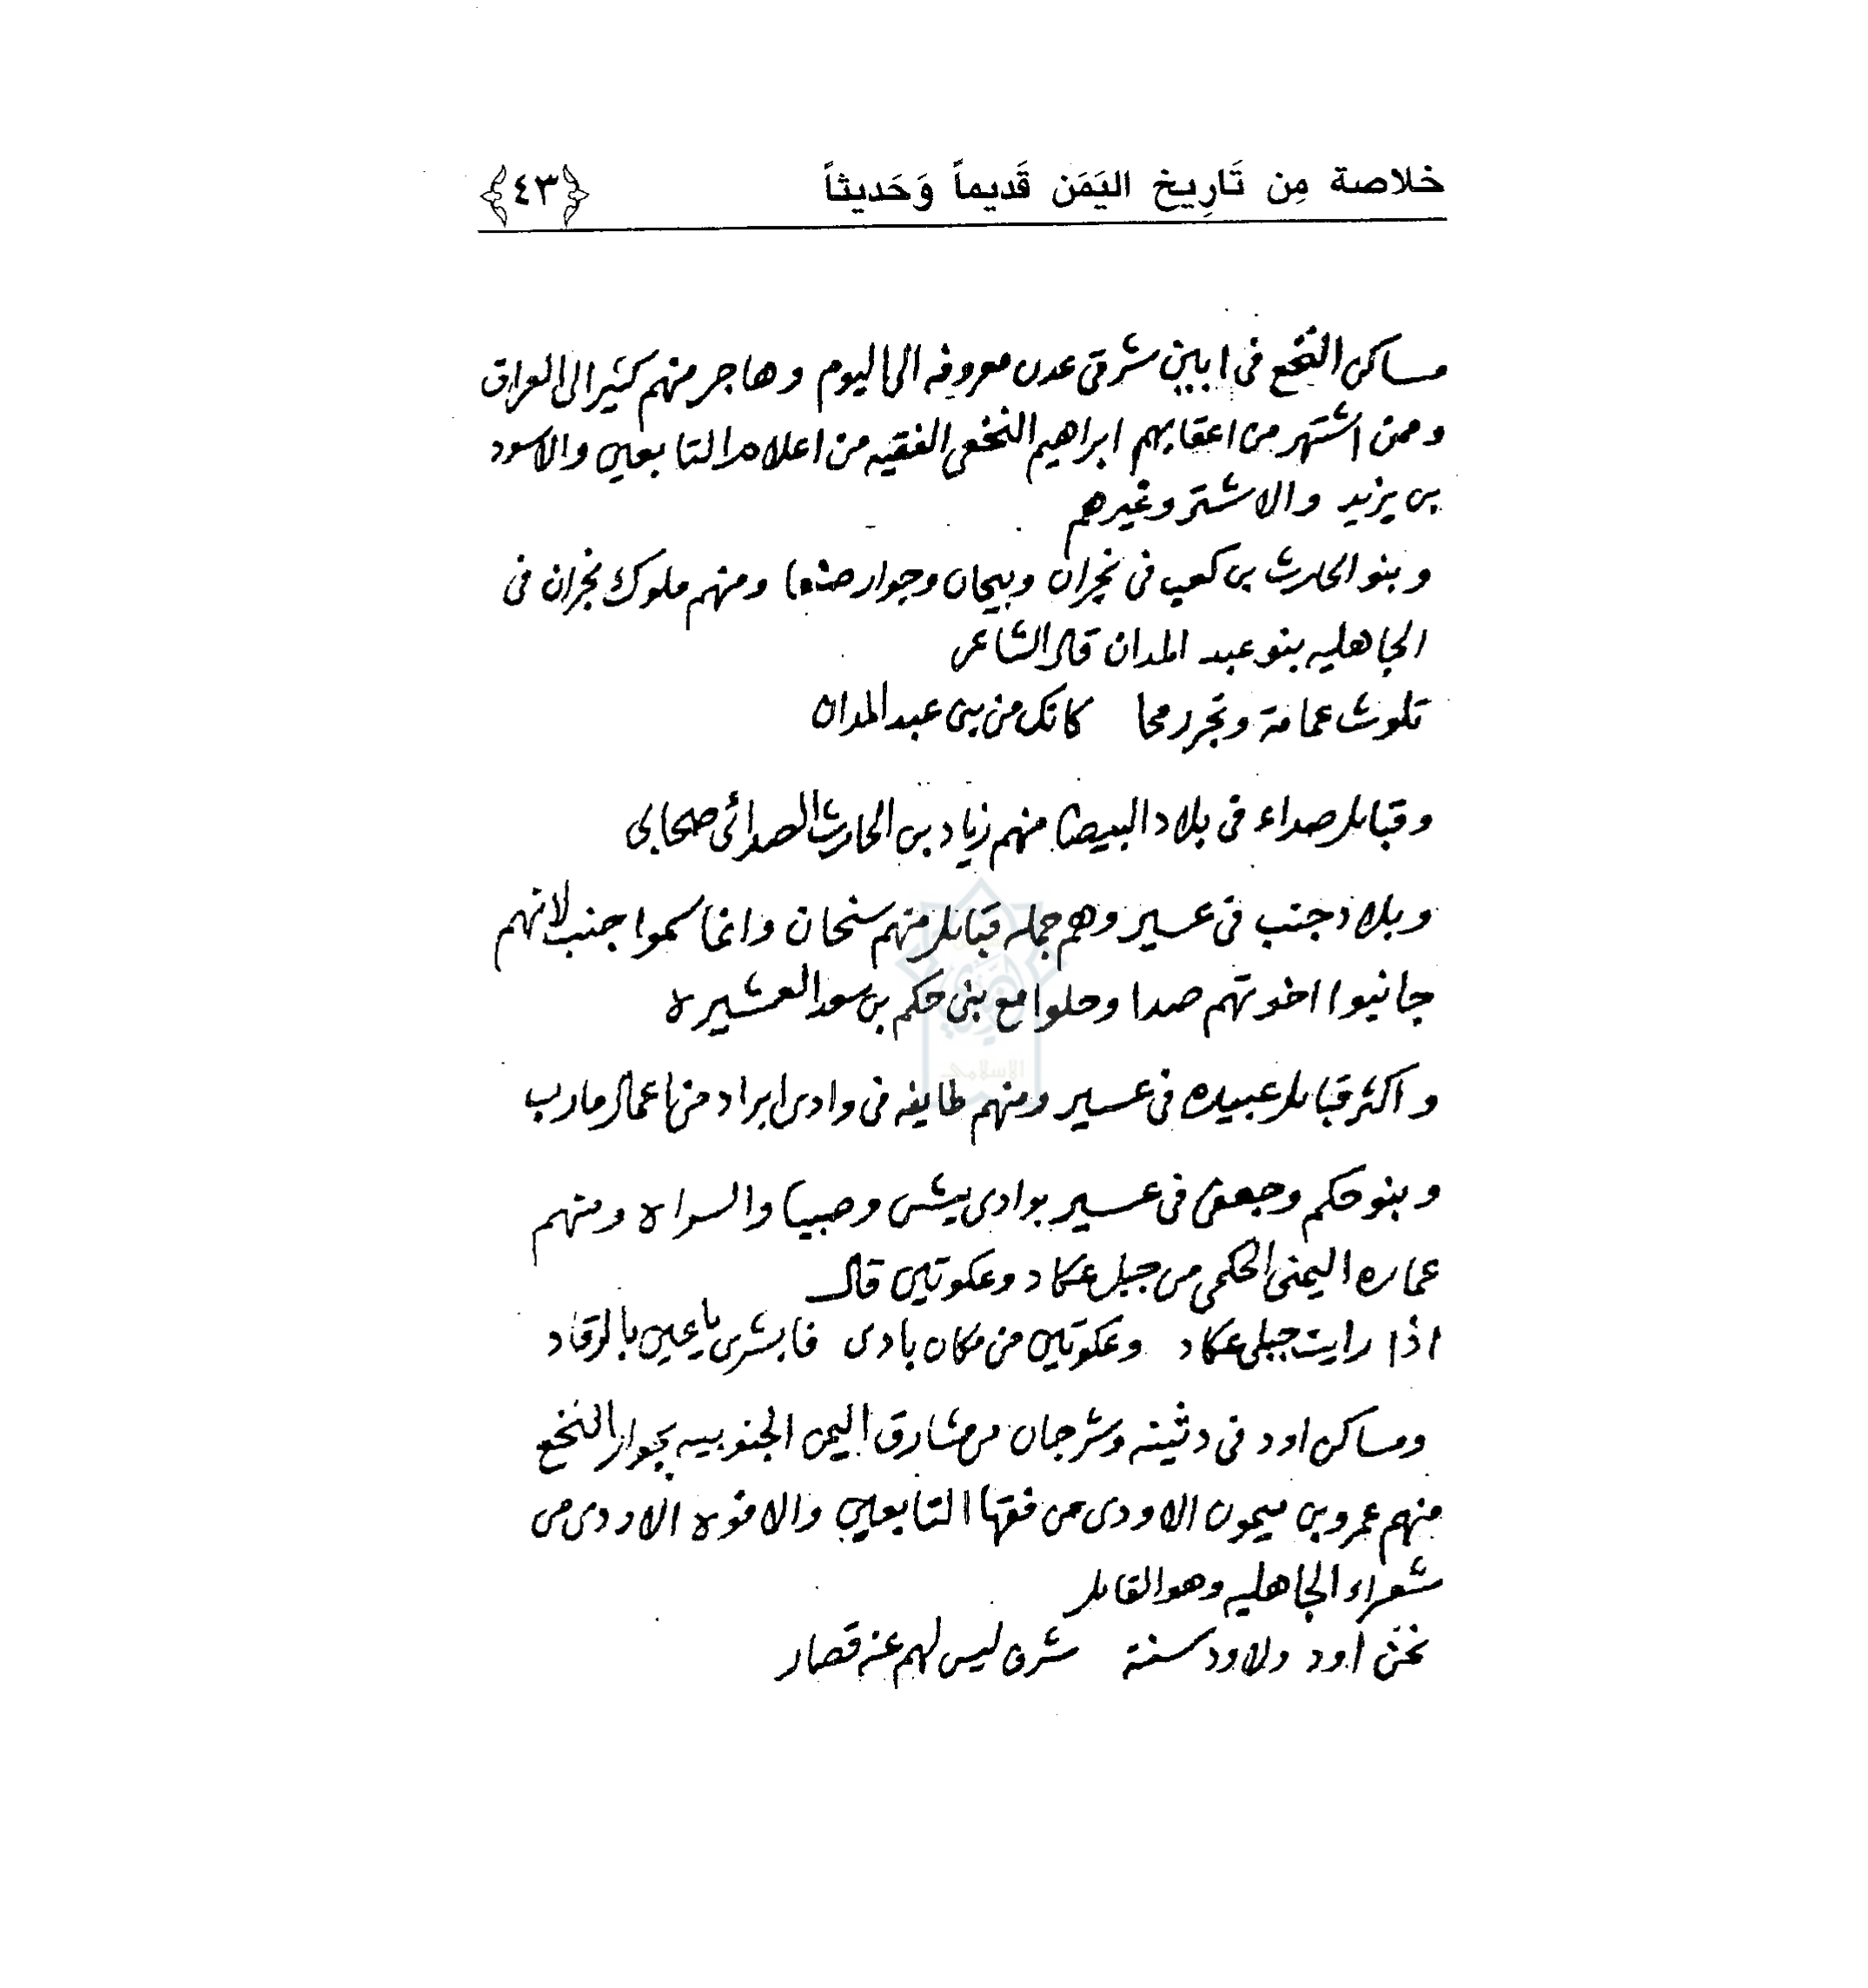 خلاصة مِن تَارِيخ اليَمَن قَديماً وَحَديثاً ﴿٤٣﴾
مساكن النخع في ابين شرقي عدن معروفه الى اليوم وهاجر منهم كثير الى العراق
وممن اشتهر من اعقابهم ابراهيم النخعي الفقيه من اعلام التابعين والاسود
بن يزيد والاشتر وغيرهم
وبنو الحارث بن كعب في نجران وبيحان وجوار صنعا ومنهم ملوك نجران في
الجاهليه بنو عبد المدان قال الشاعر
تلوث عمامة وتجر رمحا كانك من بني عبد المدان
وقبايل صداء في بلاد البيضا منهم زياد بن الحارث الصدائي صحابي
وبلاد جنب في عسير وهم جمله قبايل منهم سنحان وانما سموا جنب لانهم
جانبوا اخوتهم صدا وحلوا مع بني حكم بن سعد العشيره
واكثر قبايل عبيده في عسير ومنهم طايفه في وادي ابراد من اعمال مارب
وبنو حكم وجعفي في عسير بوادي بيش وصبيا والسراه ومنهم
عماره اليمني الحكمي من جبل عكاد وعكوتين قال
اذا رايت جبلي عكاد وعكوتين من مكان بادي فابشري ياعين بالرقاد
ومساكن اود في دثينه وسرجان من مشارق اليمن الجنوبيه بجوار النخع
منهم عمرو بن ميمون الاودي من فقها التابعين والافوه الاودي من
شعراء الجاهليه وهو القايل
نحن اود ولاود سنة شرف ليس لهم عنه قصار
الاسلامي